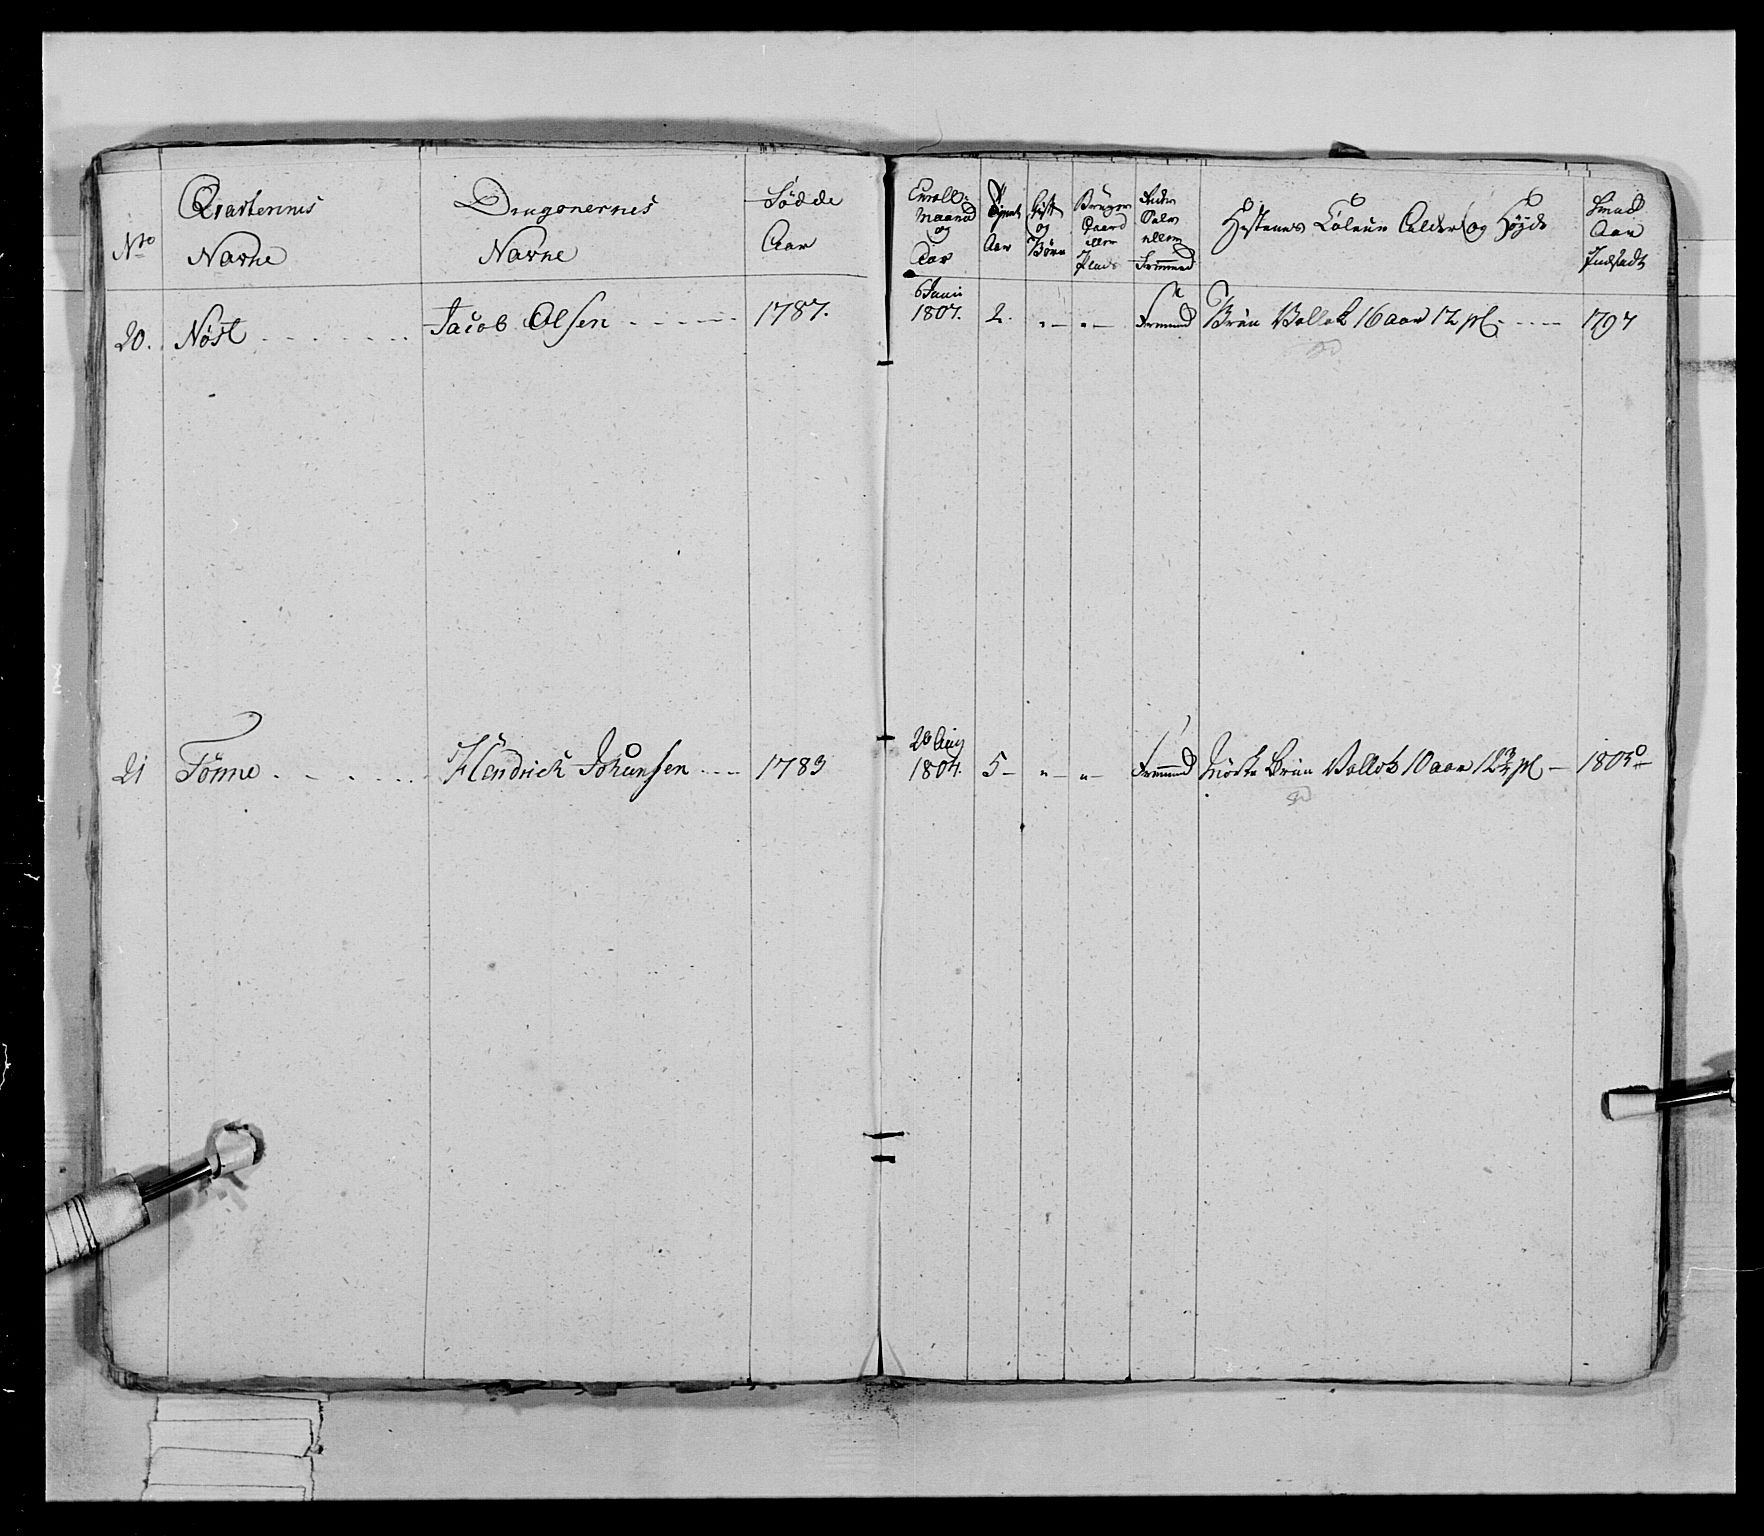 No
Qvarterernes
Navne
Dragonernes
Navne
Födde
Aar
Enroll:
Maaned
og
Aar
Tjent
Aar
Gift
og
Börn
Bruger
Gaard
eller
Plads
Inden
Sals
eller
Fremmed
Hestenes Couleur Alder og Höyde
Hvad
Aar
Indsadt
20. Nöst Jacob Olsen 1787. 6 Junii 1807. 2. " — " — Fremmed Brun Vallak 16 aar 12 pl. 1797
21 Tönne Hendrich Johansen 1783 28 Aug 1804. 5 — " — " — Fremmed Mörke Brun Vallak 10 aar 12 3/4 pl — 1803